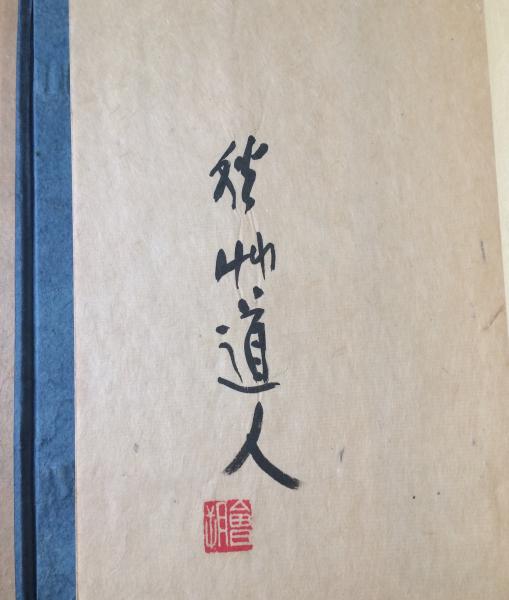 秋艸道人
會朔